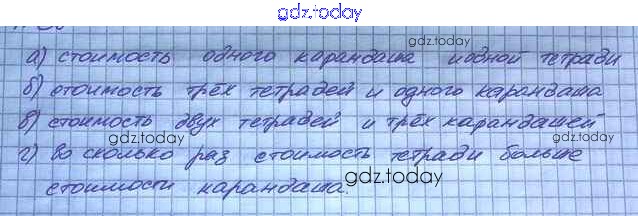 gdz.today
а) стоимость одного карандаша и одной тетради
gdz.today
б) стоимость трёх тетрадей и одного карандаша
в) стоимость двух тетрадей и трёх карандашей
gdz.today
г) во сколько раз стоимость тетради больше
gdz.today
стоимости карандаша.
gdz.today